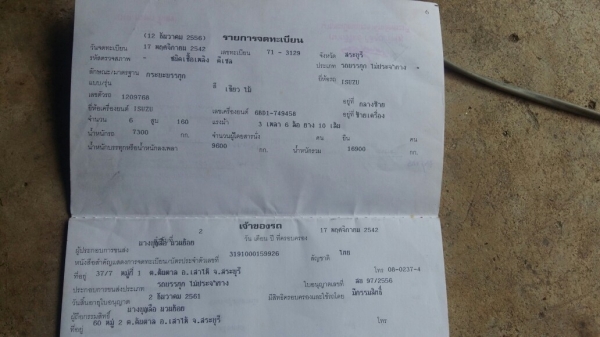 (12 ธันวาคม 2556) รายการจดทะเบียน
วันจดทะเบียน 17 พฤศจิกายน 2542 เลขทะเบียน 71 - 3129 จังหวัด สระบุรี
ชนิดเชื้อเพลิง ดีเซล ประเภท รถบรรทุก ไม่ประจำทาง
ลักษณะ/มาตรฐาน กระบะบรรทุก ยี่ห้อรถ ISUZU
แบบ/รุ่น สี เขียว
เลขตัวรถ 1200768 อยู่ที่ กลางซ้าย
ยี่ห้อเครื่องยนต์ ISUZU เลขเครื่องยนต์ 6BB1-749456 อยู่ที่ ซ้ายเครื่อง
จำนวน 6 สูบ 160 แรงม้า 3 เพลา 6 ล้อ ยาง 10 เส้น
น้ำหนักรถ 7300 กก. จำนวนผู้โดยสารนั่ง คน ยืน คน
น้ำหนักบรรทุกหรือน้ำหนักลงเพลา 9600 กก. น้ำหนักรวม 16900 กก.
เจ้าของรถ
2 วัน เดือน ปี ที่ครอบครอง 17 พฤศจิกายน 2542
ผู้ประกอบการขนส่ง
3191000159926 สัญชาติ ไทย
ที่อยู่ 37/7 หมู่ที่ 1 จ.สระบุรี โทร 08-0237-4
ประกอบการขนส่งประเภท รถบรรทุก ไม่ประจำทาง ใบอนุญาตเลขที่ สบ 97/2556
วันสิ้นอายุใบอนุญาต 2 ธันวาคม 2561 มีสิทธิครอบครองและใช้รถโดย มีกรรมสิทธิ์
ผู้ถือกรรมสิทธิ์
ที่อยู่ 60 หมู่ 2 จ.สระบุรี โทร